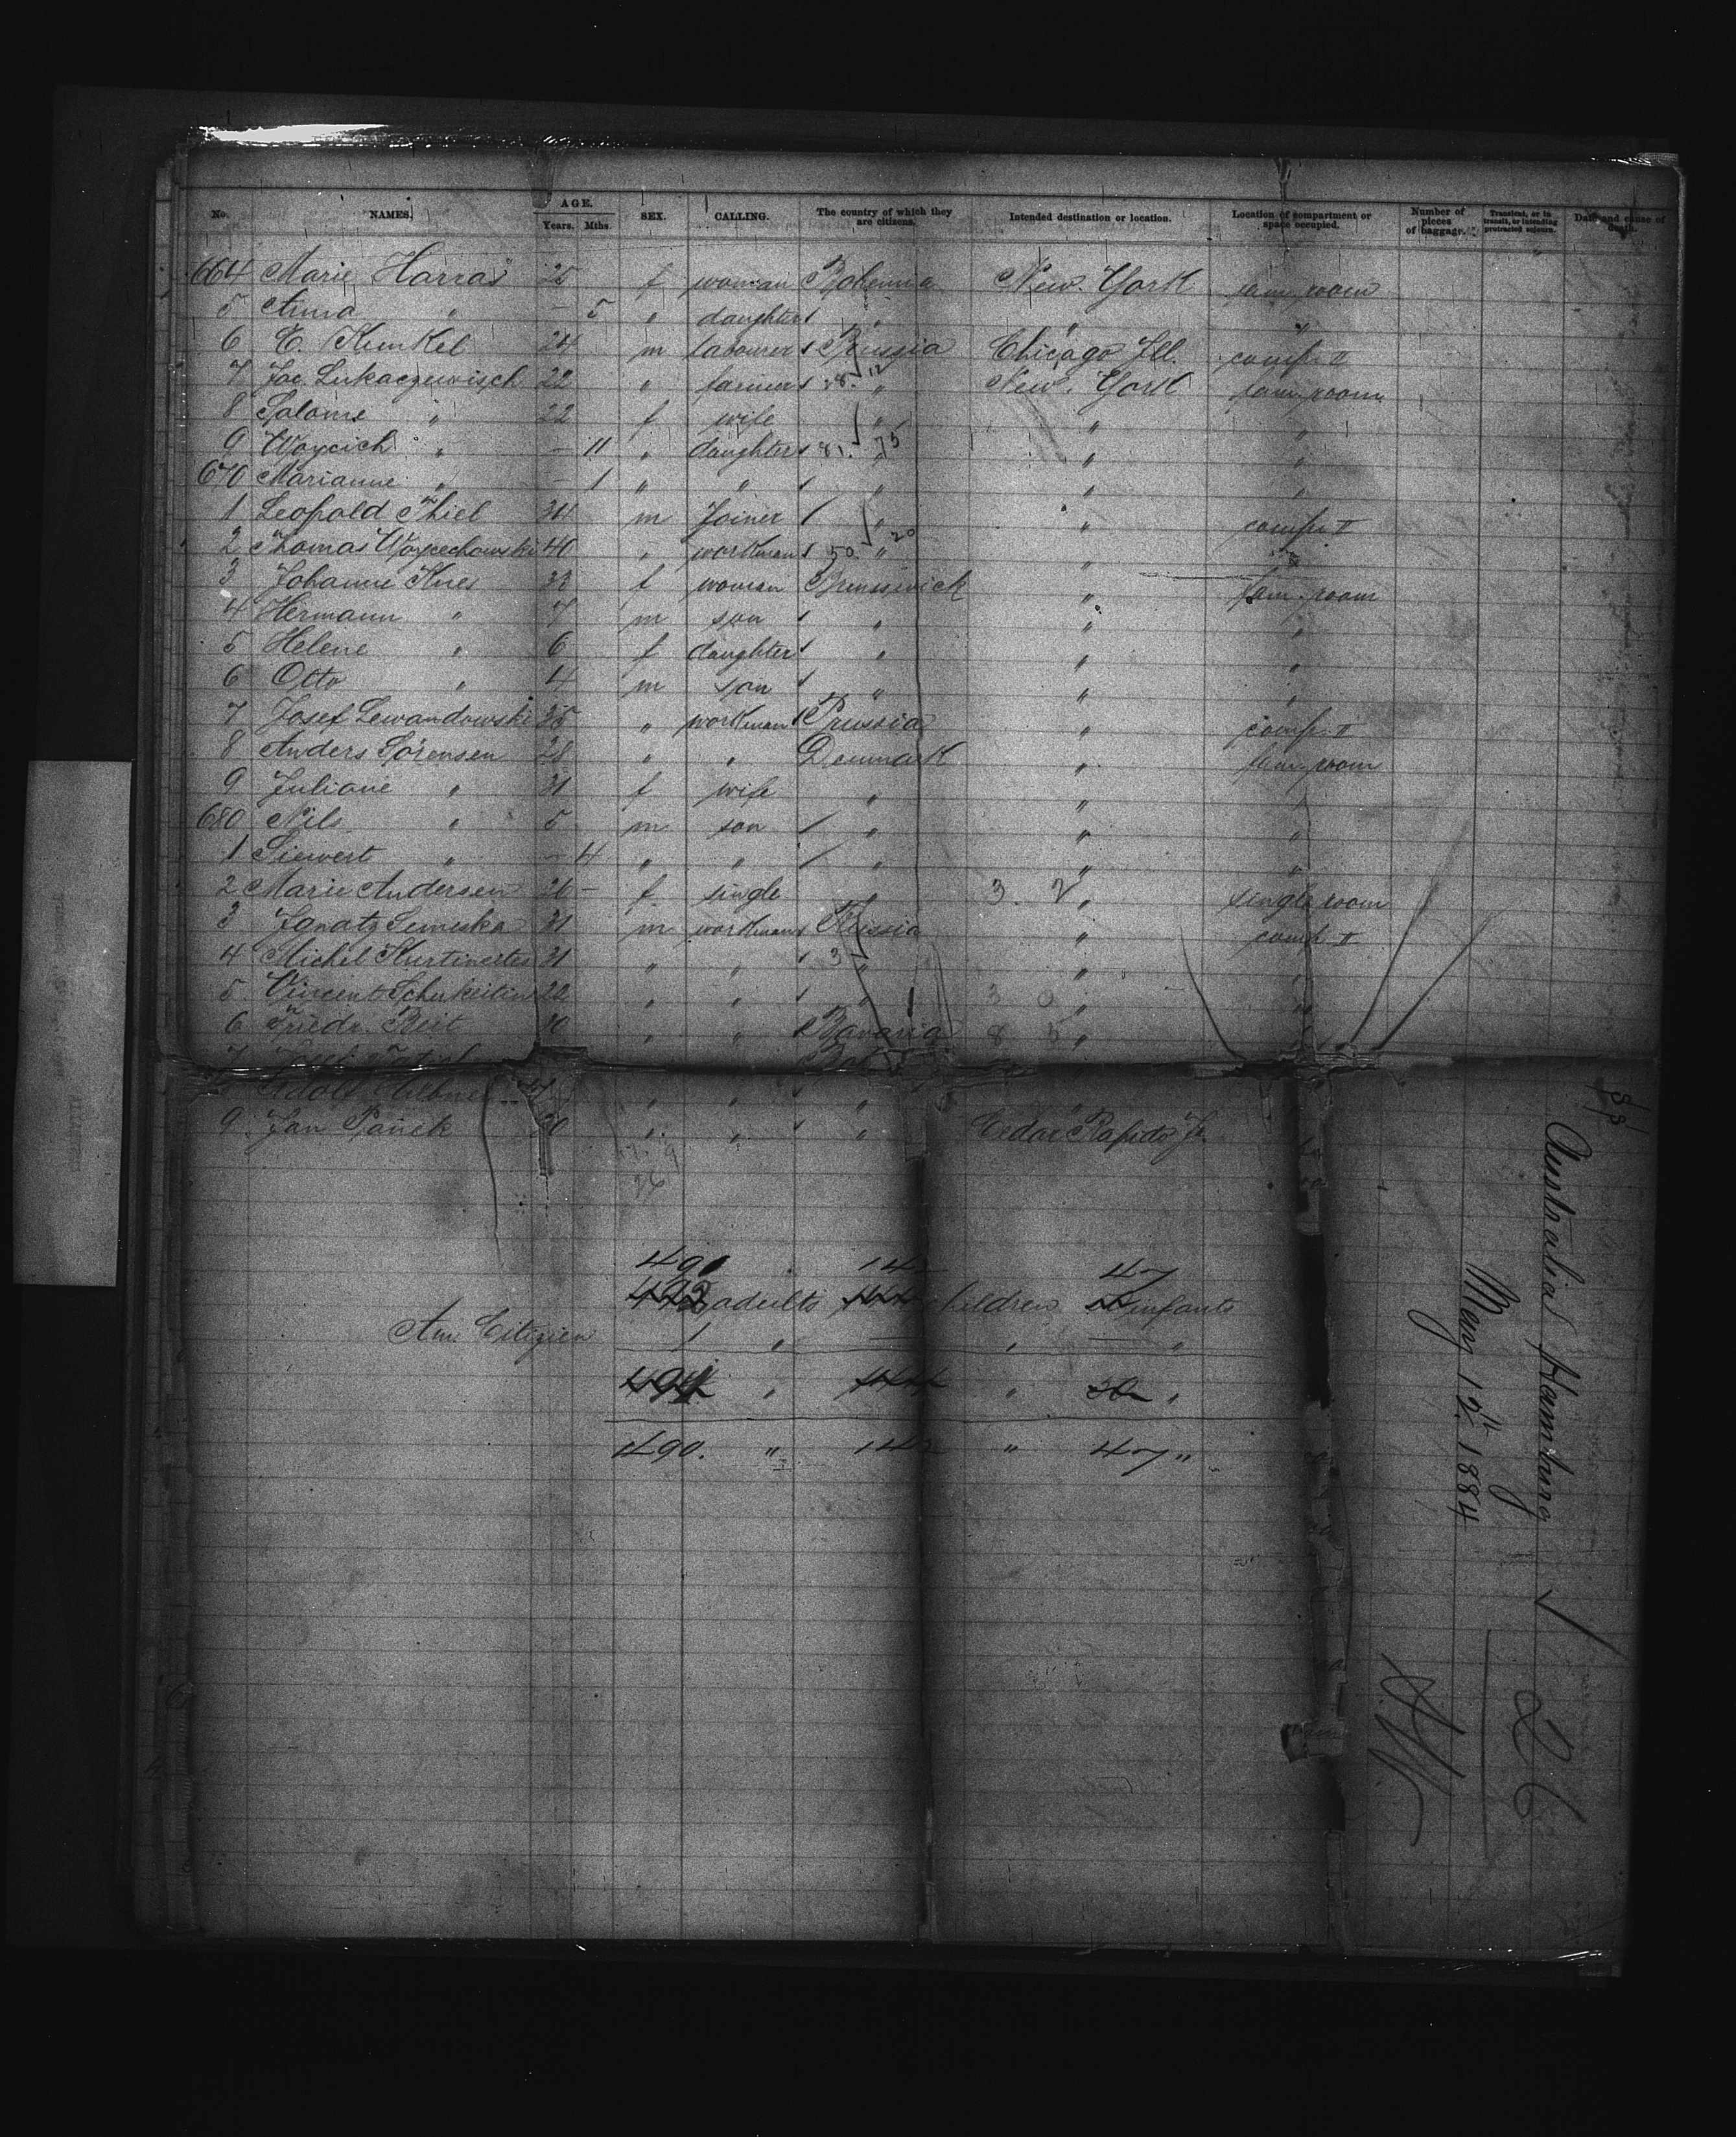 No. NAMES. AGE. Years. Mths. SEX. CALLING. The country of which they are citizens. Intended destination or location. Location of compartment or space occupied. Number of pieces of baggage. Transient, or in transit, or intending protracted sojourn. Date and cause of death.
664 Marie Harras 25 f woman Bohemia New York fam. room
5 Anna " — 5 " daughter " " "
6 C. Kunkel 24 m labourer Prussia Chicago Ill. comp. II
7 Jac. Lukaczewisch 22 " farmer " New York fam. room
8 Salome " 22 f wife " " "
9 Woycich " — 11 " daughter " " "
670 Marianne " — 1 " " " " "
1 Leopold Thiel 34 m Joiner " " comp. II
2 Thomas Woycechowski 40 " workman " " "
3 Johanne Knes 33 f woman Brunswick " fam. room
4 Hermann " 7 m son " " "
5 Helene " 6 f daughter " " "
6 Otto " 4 m son " " "
7 Josef Lewandowski 25 " workman Prussia " comp. II
8 Anders Sörensen 28 " " Denmark " fam. room
9 Juliane " 31 f wife " " "
680 Nils " 5 m son " " "
1 Siewert " — 4 " " " " "
2 Marie Andersen 26 — f. single " " single room
3 Ignatz Lemeska 31 m workman Russia " comp. II
4 Michel 31 " " " " "
5 Vincent 22 " " " " "
6 Friedr. Reit 30 " " Bavaria " "
7 Josef
Adolf " " " "
9 Jan Panek 30 " " " Cedar Rapids Ia.
490 " 142 47
adults children infants
Am Citizien 1 " — " — "
494 " 144 " 30 "
490. " 142 " 47 "
Australia Hamburg
May 12th 1884
26